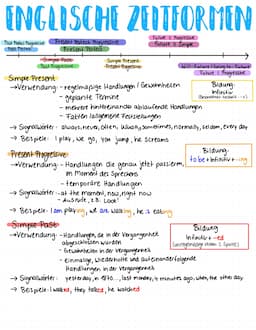 ENGLISCHE ZEITFORMEN
Past Perfect Progressive
Past Perfect
Present Perfect Progressive
Present Perfect
Future I Progressive
Future I Simple
Simple Past
Past Progressive
Simple Present
Present Progressive
Future II Progressive
Simple Present
→ Verwendung: - regelmäßige Handlungen / Gewohnheiten
- geplante Termine
- mehrere hintereinander ablaufende Handlungen
- Fakten / allgemeine Feststellungen
→ Signalwörter: - always, never, often, usually, sometimes, normally, seldom, every day
→ Beispiele: - I play, we go, you jump, he screams
Bildung:
Infinitiv
Present Progressive
→ Verwendung: - Handlungen, die genau jetzt passieren,
im Moment des Sprechens
- temporäre Handlungen
→ Signalwörter: - at the moment, now, right now
- Ausrufe, z.B. Look!
→ Beispiele: - I am playing, we are walking, he is eating
Bildung:
to be + Infinitiv + -ing
Simple Past
→ Verwendung: - Handlungen, die in der Vergangenheit
abgeschlossen wurden
- Gewohnheiten in der Vergangenheit
- einmalige, wiederholte und aufeinanderfolgende
Handlungen in der Vergangenheit
→ Signalwörter: - yesterday, in 1970, last monday, 4 minutes ago, when, the other day
→ Beispiele: - I walked, they talked, he watched
Bildung
Infinitiv + -ed